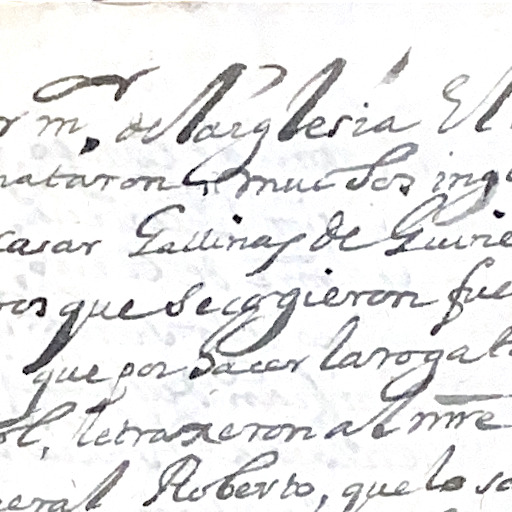 r m.ª de la iglesia El
mataron muchos ing
casar Gallinas de Guine
ros que se cogieron fue
que por sacar la rogat
ol, le traxeron al nr̃e
neral Roberto, que lo sa